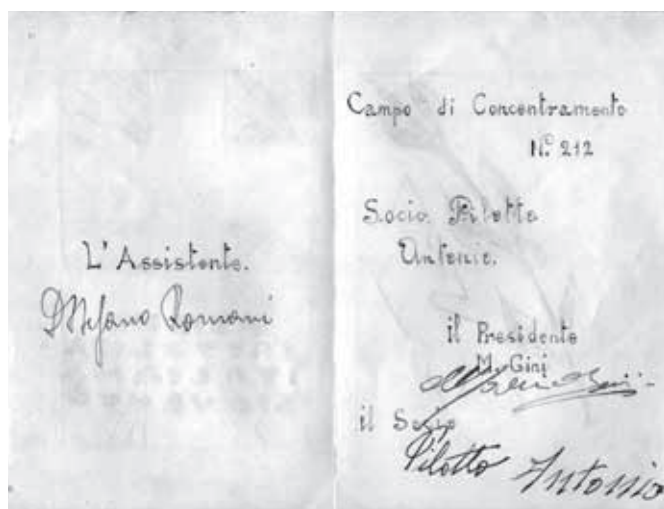 L'Assistente.
D Stefano Romani
Campo di Concentramento
N.º 212
Socio. Pilotto
Antonio.
il Presidente
M. Gini
il Socio
Pilotto Antonio